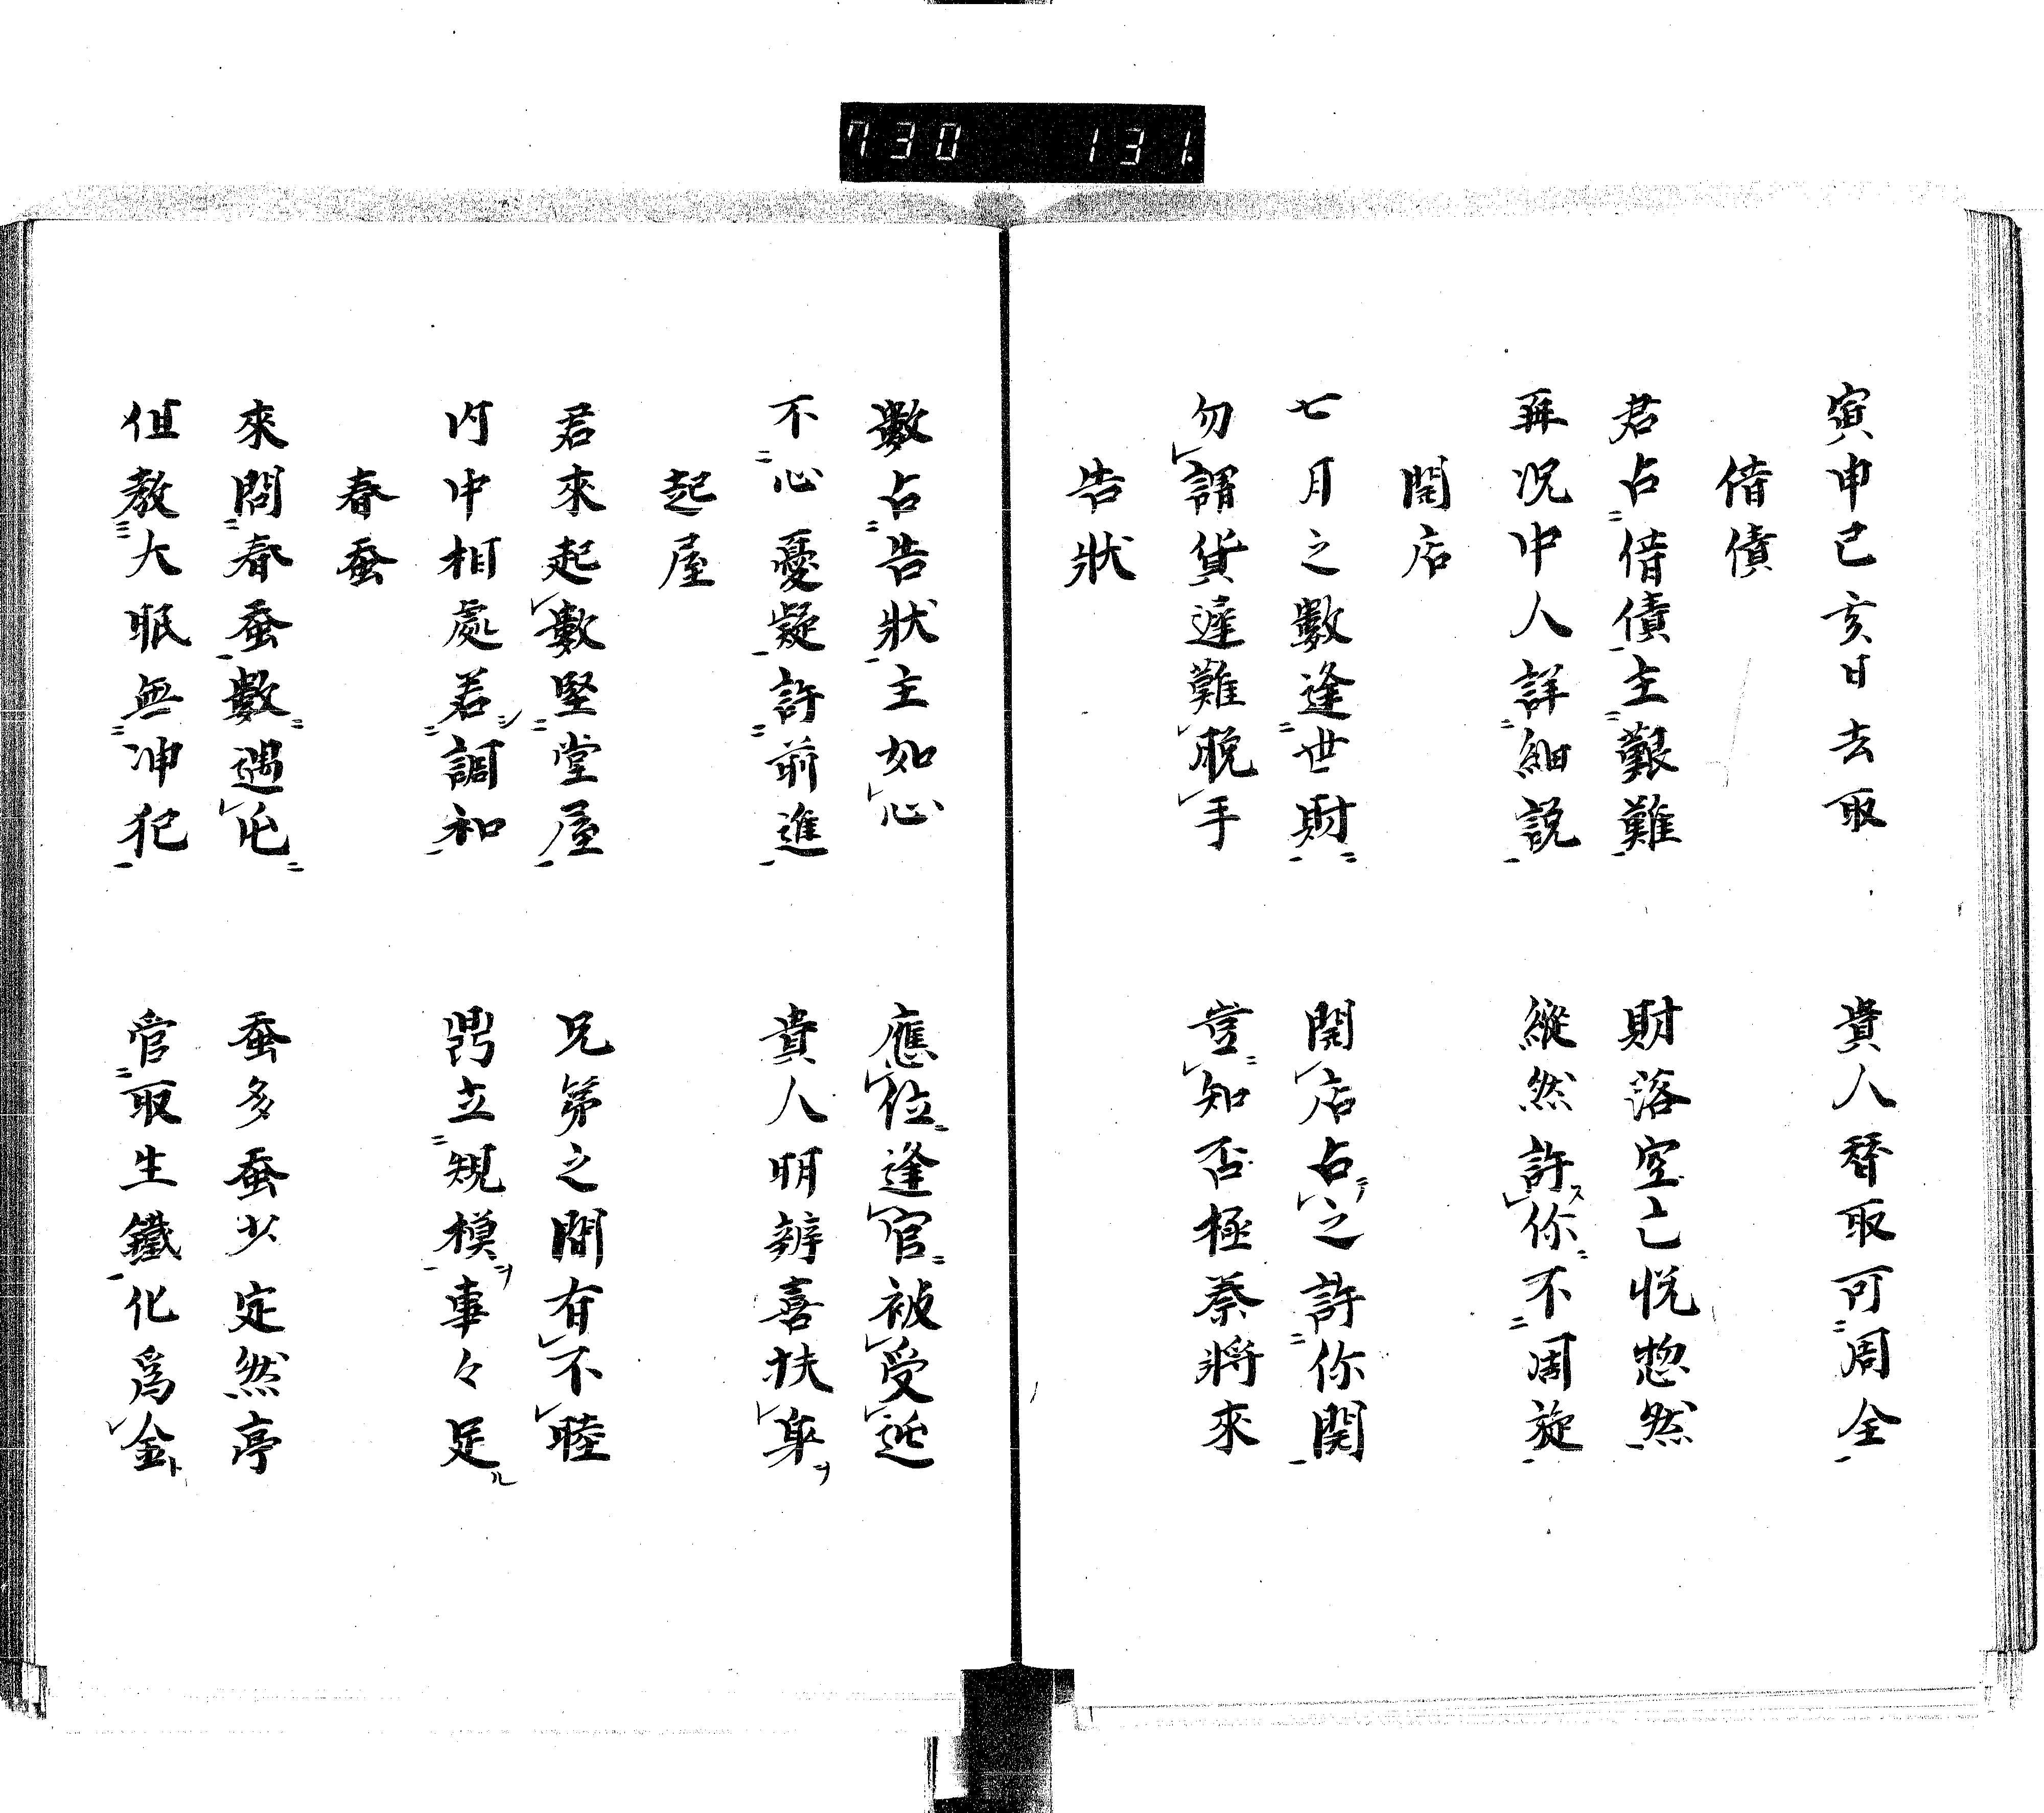 730 131.
寅申巳亥日去取 貴人替取可周全
借債
君占借債主艱難 財落空亡恍惚然
再況中人詳細説 縱然許你不周旋
開店
七月之數逢世財 開店占之許你開
勿謂貨遲難脱手 豈知否極泰將來
告狀
數占告狀主如心 應位逢官被受迍
不心憂疑許前進 貴人明辨喜扶身
起屋
君來起數堅堂屋 兄弟之間有不睦
內中相處若調和 門立規模事々足
春蚕
來問春蚕數遇屯 蚕多蚕少定然亭
但教大眠無冲犯 管取生鐵化爲金